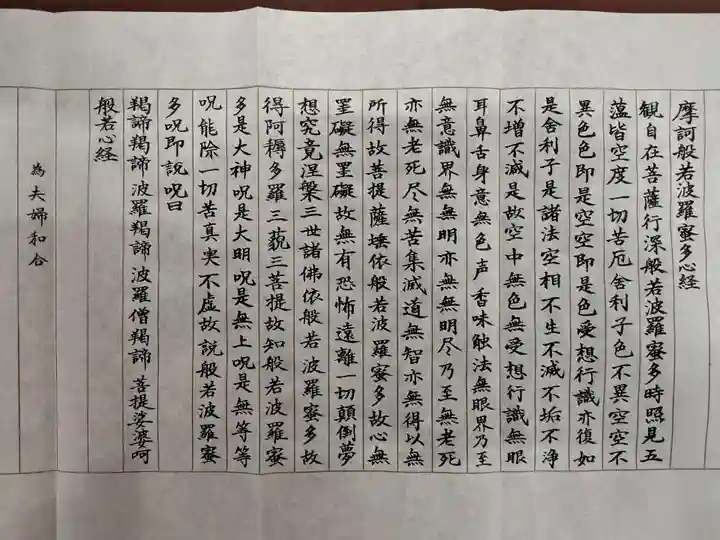 摩訶般若波羅蜜多心経
観自在菩薩行深般若波羅蜜多時照見五
薀皆空度一切苦厄舎利子色不異空空不
異色色即是空空即是色受想行識亦復如
是舎利子是諸法空相不生不滅不垢不浄
不増不減是故空中無色無受想行識無眼
耳鼻舌身意無色声香味触法無眼界乃至
無意識界無無明亦無無明尽乃至無老死
亦無老死尽無苦集滅道無智亦無得以無
所得故菩提薩埵依般若波羅蜜多故心無
罣礙無罣礙故無有恐怖遠離一切顛倒夢
想究竟涅槃三世諸佛依般若波羅蜜多故
得阿耨多羅三藐三菩提故知般若波羅蜜
多是大神呪是大明呪是無上呪是無等等
呪能除一切苦真実不虚故説般若波羅蜜
多呪即説呪曰
羯諦羯諦波羅羯諦波羅僧羯諦菩提娑婆呵
般若心経
為夫婦和合